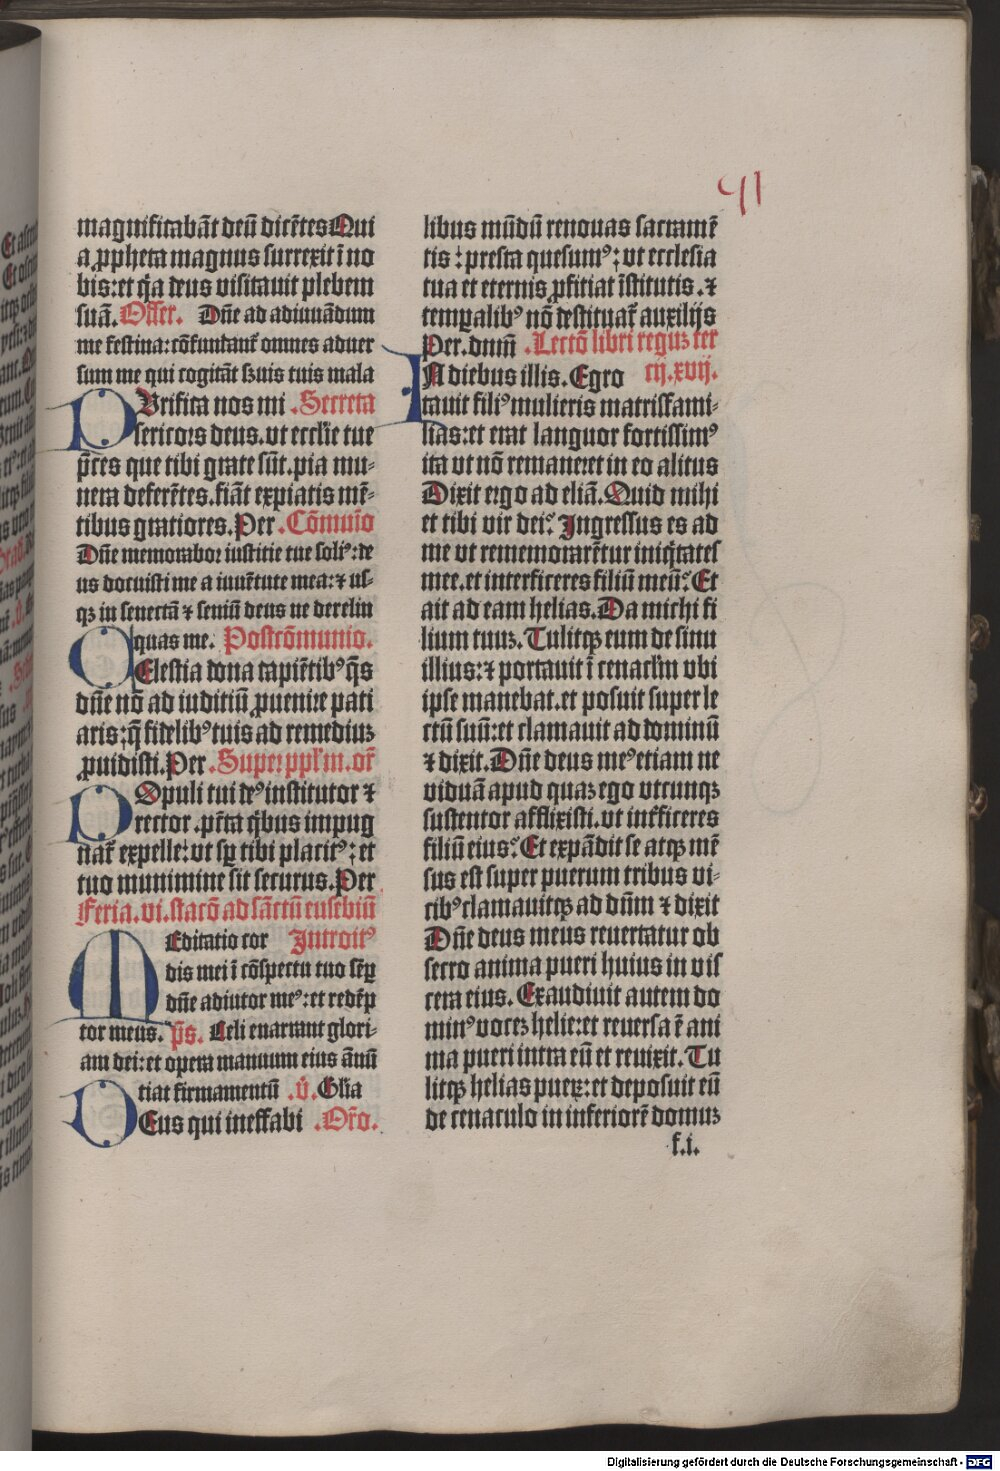 41
magnificabāt deū dicētes Qui
a ꝓpheta magnus surrexit ī no
bis: et q̄a deus visitauit plebem
suā. Offer. Dn̄e ad adiuuādum
me festina: cōfundant᷑ omnes aduer
sum me qui cogitāt ẜuis tuis mala
PVrifica nos mi .Secreta
sericors deus. vt eccl̄ie tue
p̄ces que tibi grate sūt. pia mu⸗
nera deferētes. fiāt expiatis mē⸗
tibus gratiores. Per .Cōmunio
Dn̄e memorabor iusticie tue soliꝰ: de
us docuisti me a iuuētute mea: ⁊ us⸗
qꝫ in senectā ⁊ seniū deus ne derelin
quas me. Postcōmunio.
CElestia dona capiētibꝰ q̄s
dn̄e nō ad iudiciū ꝓuenire pati
aris: q̄ fidelibꝰ tuis ad remediuꝫ
ꝓuidisti. Per .Super ppl̄m. or̄
POpuli tui deꝰ institutor ⁊
rector .pn̄ta q̄bus impug
nat᷑ expelle: vt sp̄ tibi placitꝰ: et
tuo munimine sit securus. Per
Feria .vi. stacō ad sāctū eusebiū
MEditatio cor Introitꝰ
dis mei ī cōspectu tuo sēꝑ
dn̄e adiutor meꝰ: et redēp
tor meus. p̄s. Celi enarrant glori⸗
am dei: et opera manuum eius ānū
tiat firmamentū .v̄. Gl̄ia
DEus qui ineffabi .Or̄o.
libus mūdū renouas sacramē
tis: presta quesumꝰ: vt ecclesia
tua et eternis ꝓficiat īstitutis. ⁊
temꝑalibꝰ nō destituat᷑ auxilijs
Per. dnm̄ .Lectō libri reguꝫ ter
IN diebus illis. Egro cij. xvij.
tauit filiꝰ mulieris matrisfami⸗
lias: et erat languor fortissimꝰ
ita vt nō remaneret in eo alitus
Dixit ergo ad eliā. Quid mihi
et tibi vir dei? Ingressus es ad
me vt rememorarētur iniq̄tates
mee. et interficeres filiū meū? Et
ait ad eam helias. Da michi fi
lium tuuꝫ. Tulitqꝫ eum de sinu
illius: ⁊ portauit ī cenacl̄m vbi
ipse manebat. et posuit super le
ctū suū: et clamauit ad dominū
⁊ dixit. Dn̄e deus meꝰ etiam ne
viduā apud quaꝫ ego vtcunqꝫ
sustentor afflixisti. vt inficeres
filiū eius? Et expādit se atqꝫ mē
sus est super puerum tribus vi⸗
cibꝰ clamauitqꝫ ad dn̄m ⁊ dixit
Dn̄e deus meus reuertatur ob
secro anima pueri huius in vis
cera eius. Exaudiuit autem do
minꝰ voceꝫ helie: et reuersa ē ani
ma pueri intra eū et reuixit. Tu
litqꝫ helias pueꝝ: et deposuit eū
de cenaculo in inferiorē domuꝫ
f.i.
Digitalisierung gefördert durch die Deutsche Forschungsgemeinschaft - DFG